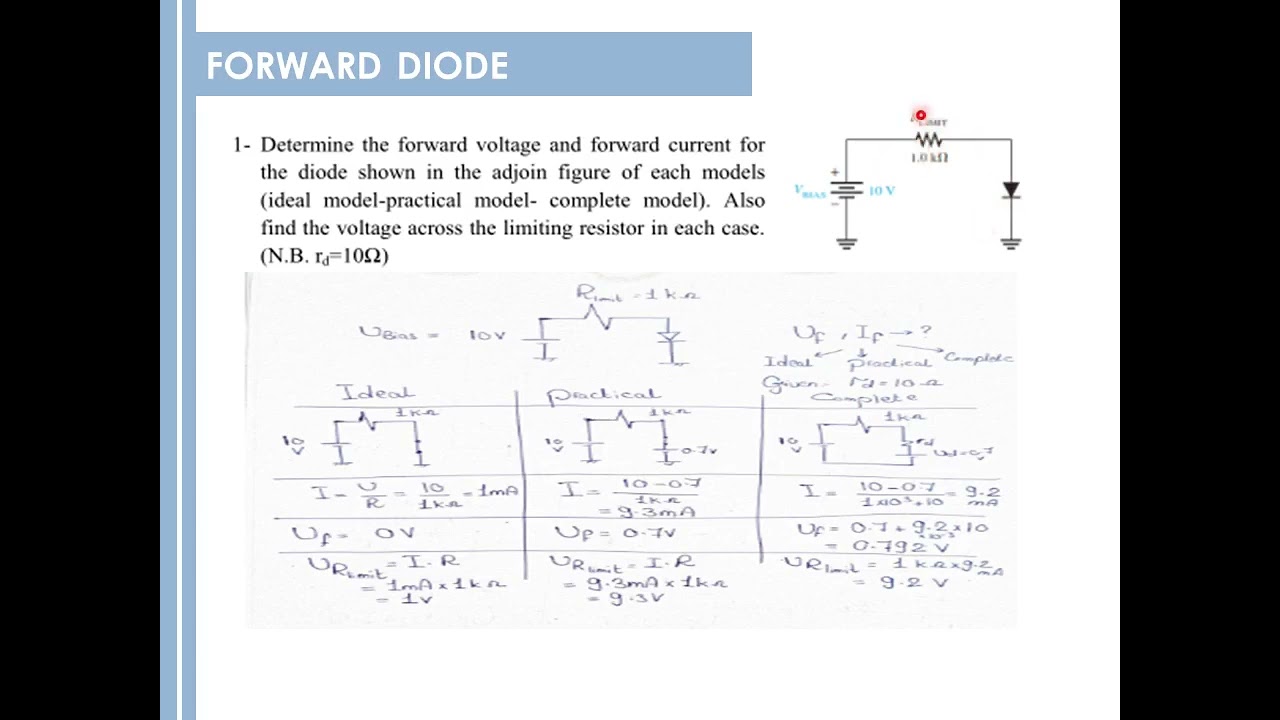 FORWARD DIODE
1- Determine the forward voltage and forward current for
the diode shown in the adjoin figure of each models
(ideal model-practical model- complete model). Also
find the voltage across the limiting resistor in each case.
(N.B. rd=10Ω)
1.0 kΩ
+
VBIAS
10 V
−
Rlimit = 1 kΩ
UBias = 10V
Uf, If → ?
Ideal practical Complete
Given rd = 10 Ω
Ideal
practical
Complete
1kΩ
10 V
1kΩ
10 V
0.7V
1kΩ
10 V
rd
I = U/R = 10/1kΩ = 1mA
I = 10-0.7/1kΩ
= 9.3mA
I = 10-0.7/1x10³+10 = 9.2 mA
Uf = 0V
Uf = 0.7V
Uf = 0.7 + 9.2x10
x10-3
= 0.792 V
URlimit = I.R
= 1mA x 1kΩ
= 1V
URlimit = I.R
= 9.3mA x 1kΩ
= 9.3V
URlimit = 1kΩ x 9.2 mA
= 9.2 V